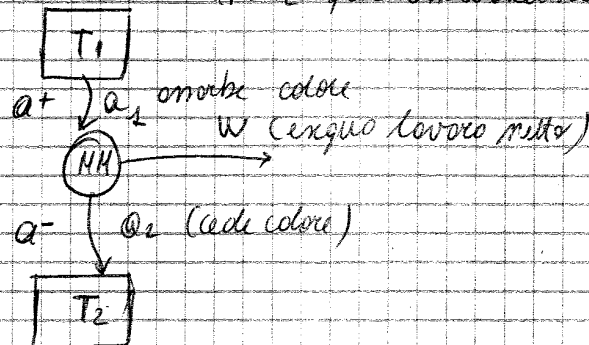 T1
Q+ Q1 assorbe calore
W (eseguo lavoro netto)
MM
Q- Q2 (cede calore)
T2